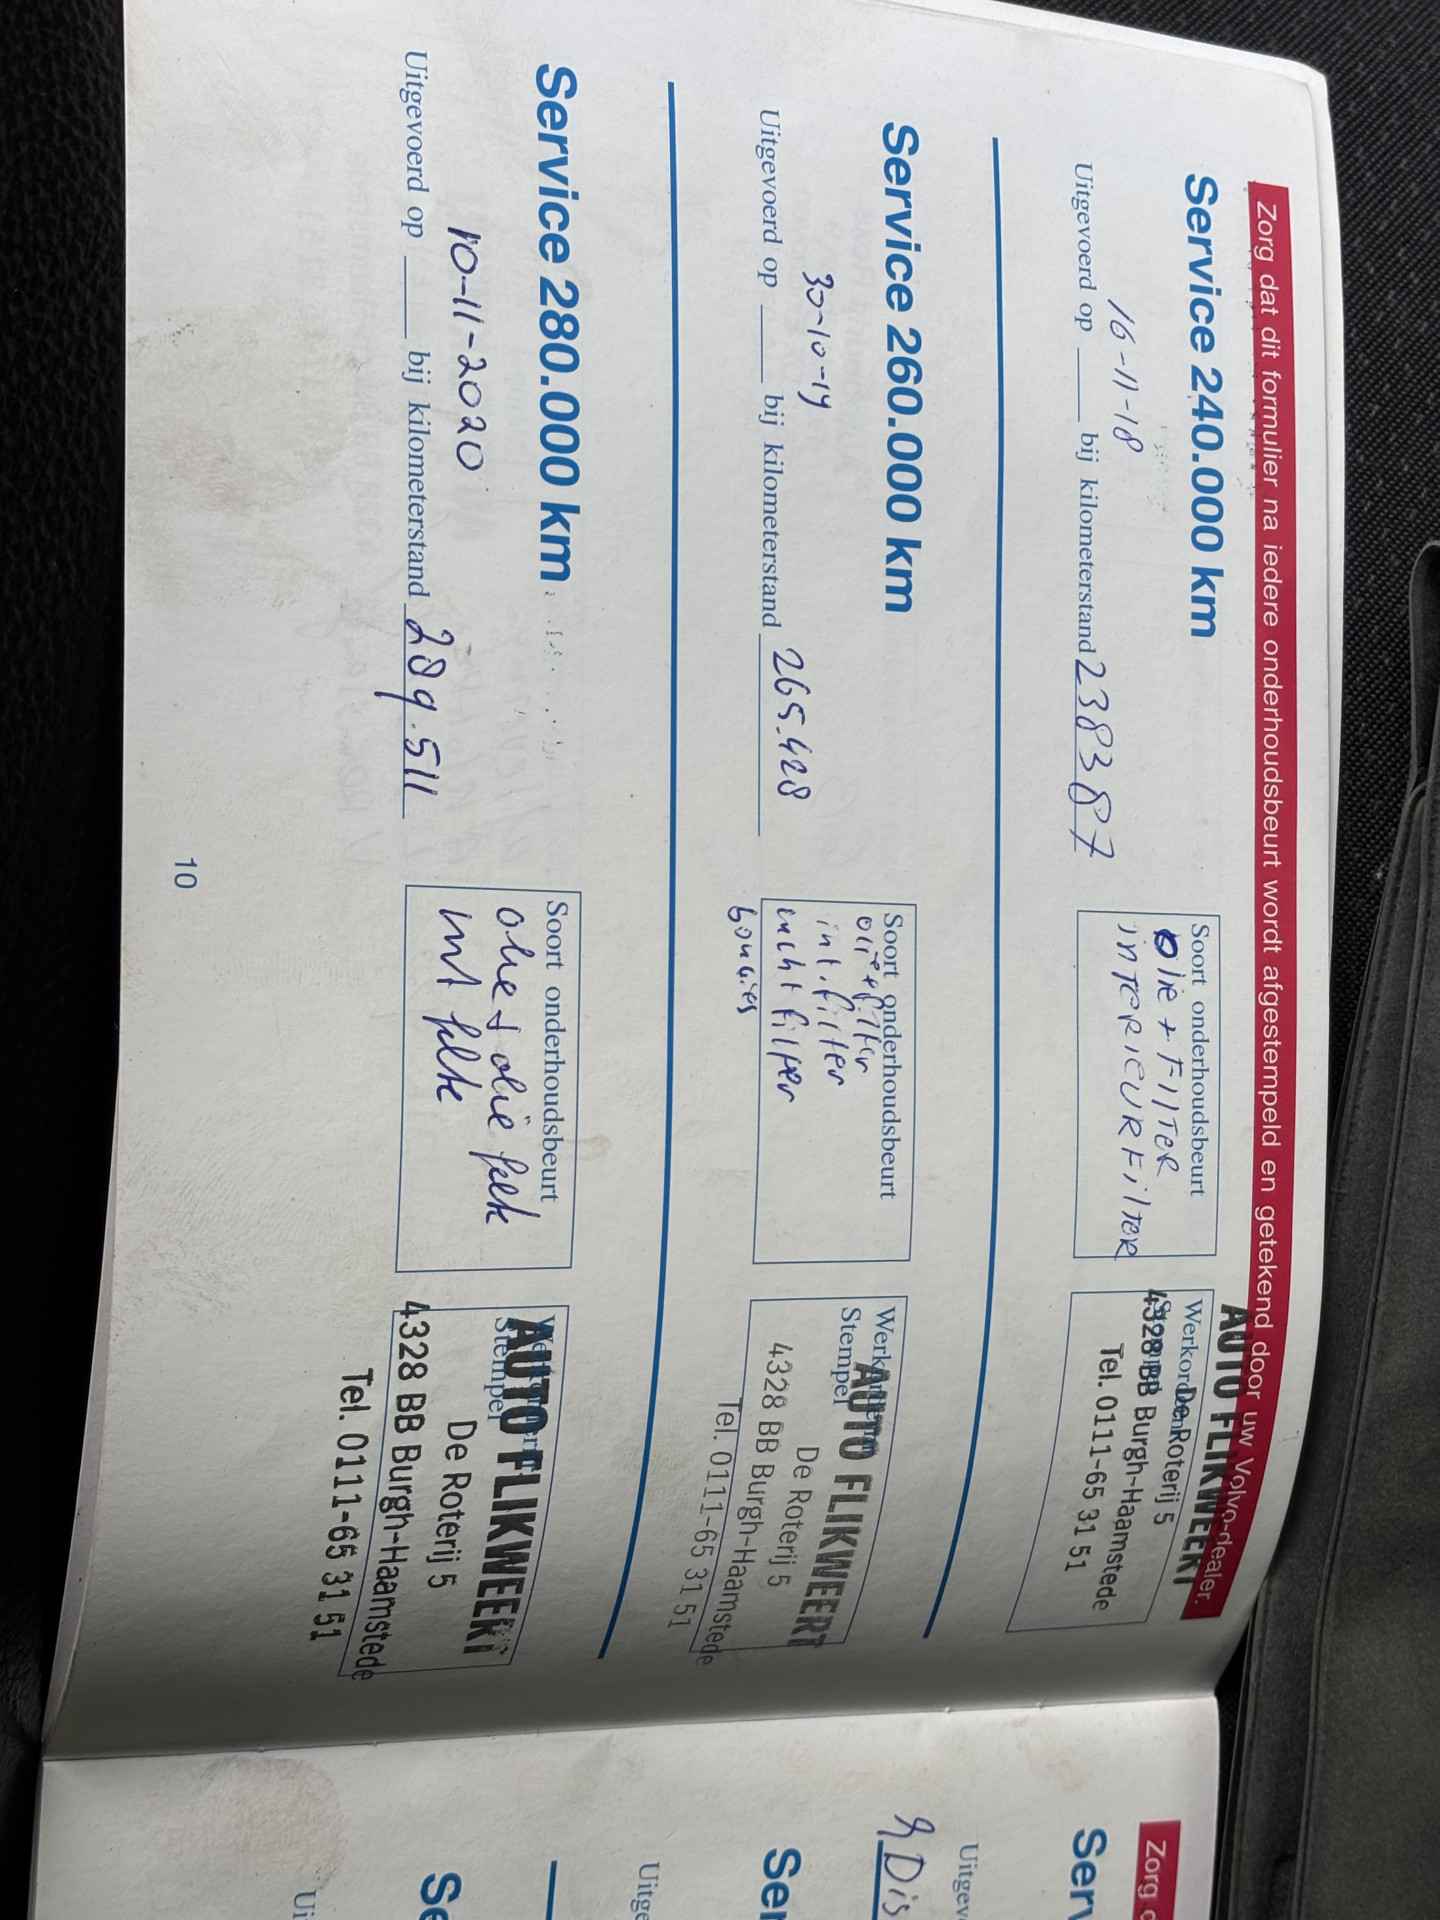 Zorg dat dit formulier na iedere onderhoudsbeurt wordt afgestempeld en getekend door uw Volvo-dealer.
Service 240.000 km
16-11-18
Uitgevoerd op ____ bij kilometerstand 238387
Soort onderhoudsbeurt
olie + FilTER
inTERIEURFilTER
Werkordernr
Stempel
AUTO FLIKWEERT
De Roterij 5
4328 BB Burgh-Haamstede
Tel. 0111-65 31 51
Service 260.000 km
30-10-19
Uitgevoerd op ____ bij kilometerstand 265.428
Soort onderhoudsbeurt
olie + filter
int. filter
lucht filter
bougies
Stempel
AUTO FLIKWEERT
De Roterij 5
4328 BB Burgh-Haamstede
Tel. 0111-65 31 51
Service 280.000 km
10-11-2020
Uitgevoerd op ____ bij kilometerstand 289.511
Soort onderhoudsbeurt
olie + olie
int
Stempel
AUTO FLIKWEERT
De Roterij 5
4328 BB Burgh-Haamstede
Tel. 0111-65 31 51
10
Zorg
Serv
Uitgev
Dis
Ser
Uitge
Se
Ui